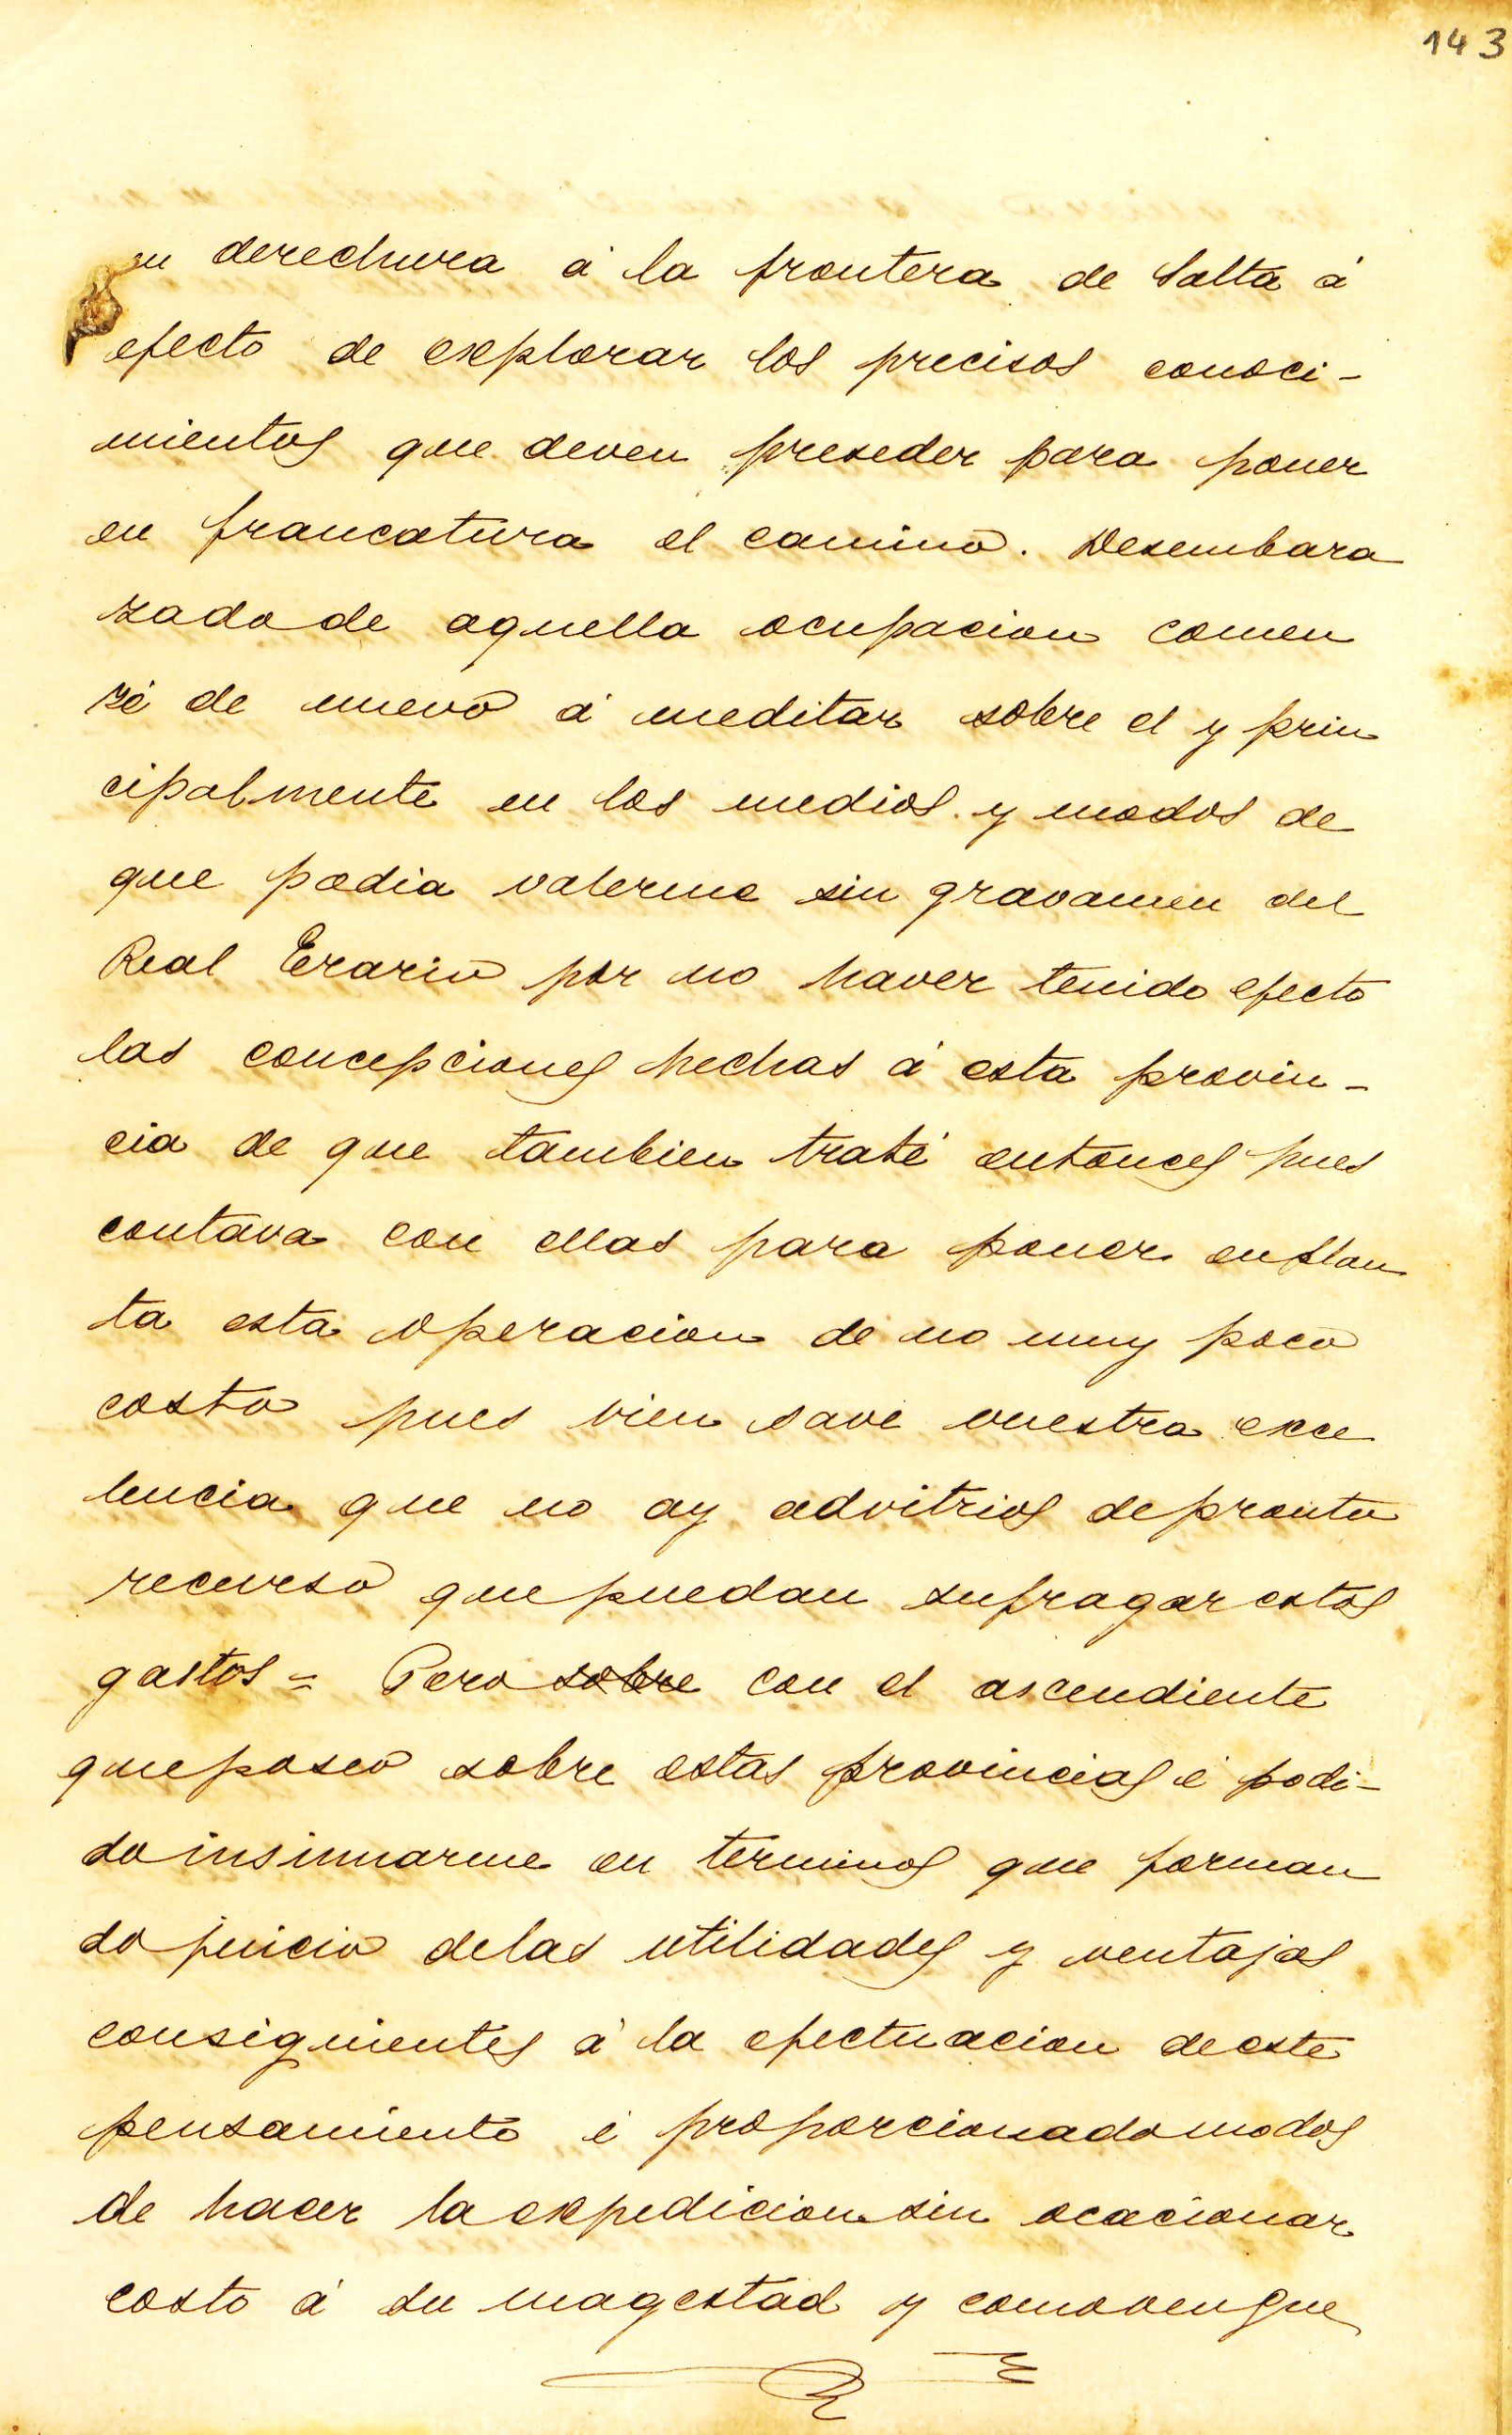 143
en derechura á la frontera de Salta á
efecto de explorar los precisos conoci-
mientos que deven preseder para poner
en francatura el camino. Desembara
zado de aquella ocupacion comen
zé de nuevo á meditar sobre el y prin
cipalmente en los medios y modos de
que podia valerme sin gravamen del
Real Erario por no haver tenido efecto
las concepciones hechas á esta provin-
cia de que tambien traté entonces pues
contava con ellas para poner enplan
ta esta operacion de no muy poco
costo pues vien save vuestra exce
lencia que no ay advitrios depronto
recurso quepuedan sufragar estos
gastos = Pero sobre con el ascendiente
queposeo sobre estas provincias é podi-
do insinuarme en terminos que forman
do juicio delas utilidades y ventajas
consiguientes á la efectuacion deeste
pensamiento é proporcionado modos
de hacer la expedicion sin ocacionar
costo á su magestad y comovengue